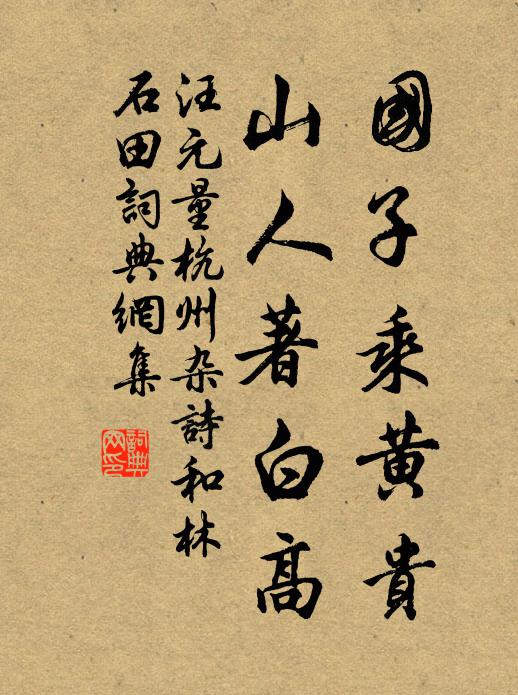 國子乘黃貴
山人著白高
汪元量杭州杂詩和林
石田詞典網集
詞典
网印